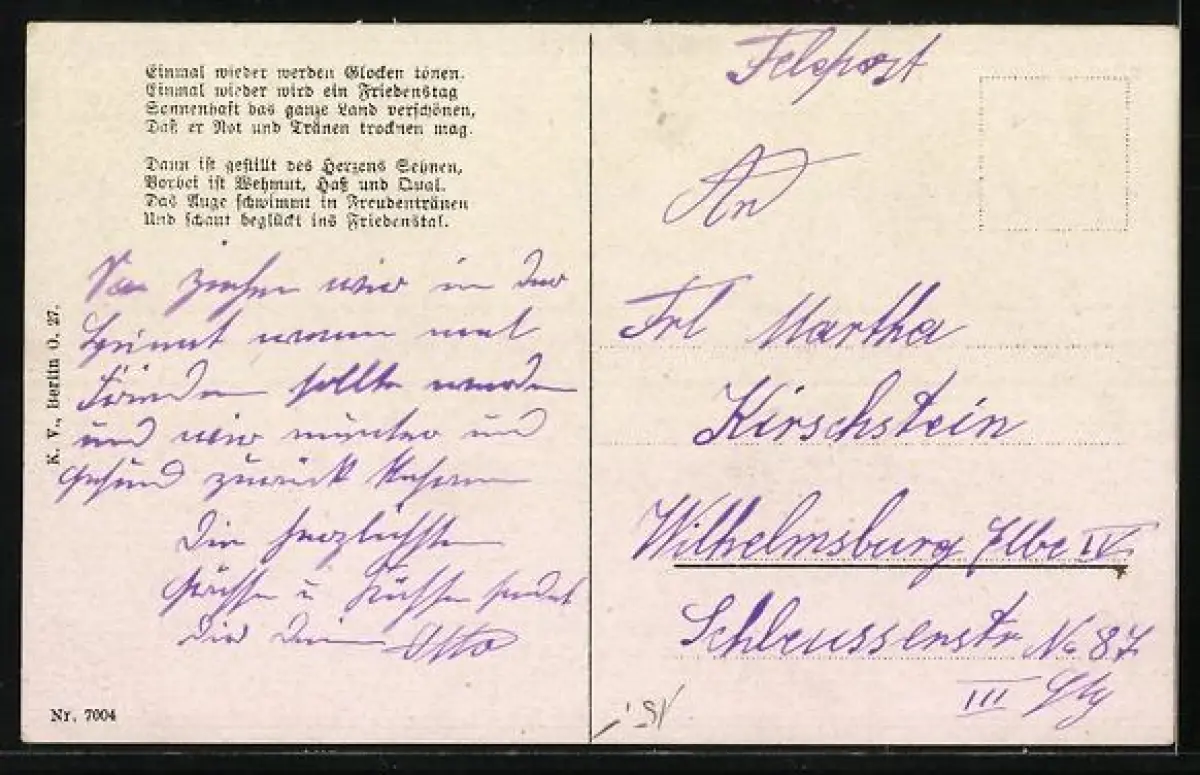 Einmal wieder werden Glocken tönen.
Einmal wieder wird ein Friedenstag
Sonnenhaft das ganze Land verschönen,
Daß er Not und Tränen trocknen mag.
Dann ist gestillt des Herzens Sehnen,
Vorbei ist Wehmut, Haß und Qual.
Das Auge schwimmt in Freudentränen
Und schaut beglückt ins Friedenstal.
So ziehen wir in der
Heimat wenn mal
Frieden sollte werden
und wir munter und
gesund zurück kehren
Die herzlichsten
Grüsse u Küsse sendet
dir dein Otto
K. V., Berlin O. 27.
Nr. 7004
Feldpost
An
Frl Martha
Kirschstein
Wilhelmsburg Elbe IV
Schleussenstr No 87
III Etg